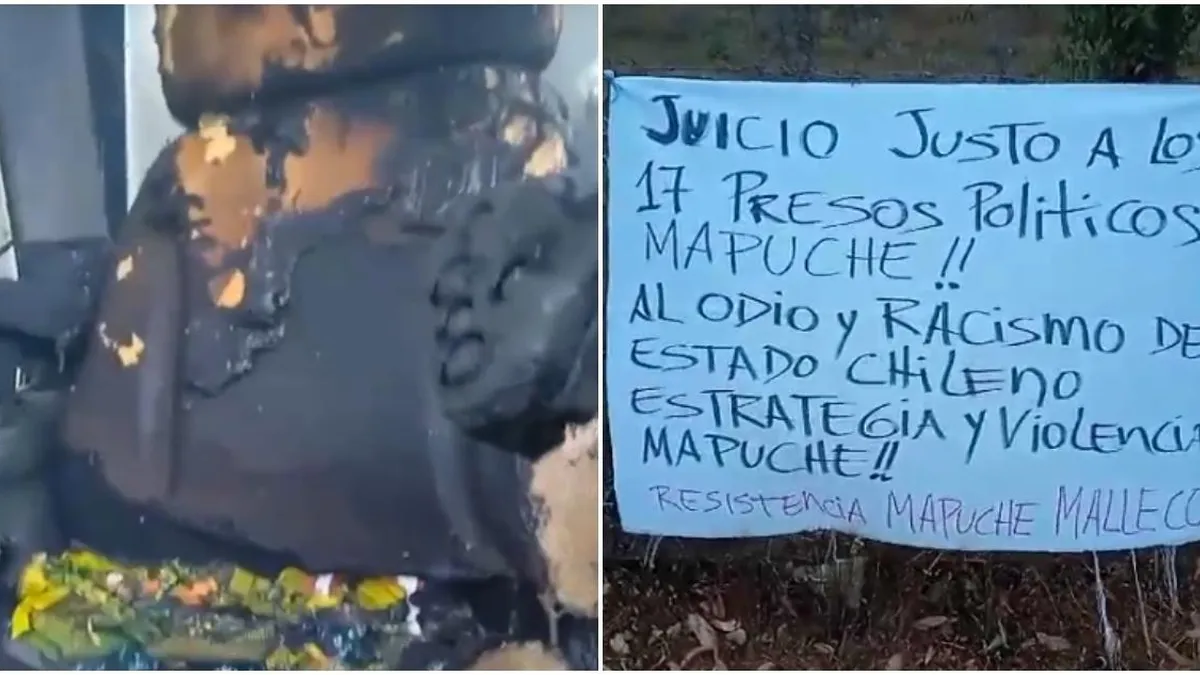 JUICIO JUSTO A LOS
17 PRESOS POLITICOS
MAPUCHE!!
AL ODIO Y RACISMO DE
ESTADO CHILENO
ESTRATEGIA Y VIOLENCIA
MAPUCHE!!
RESISTENCIA MAPUCHE MALLECO